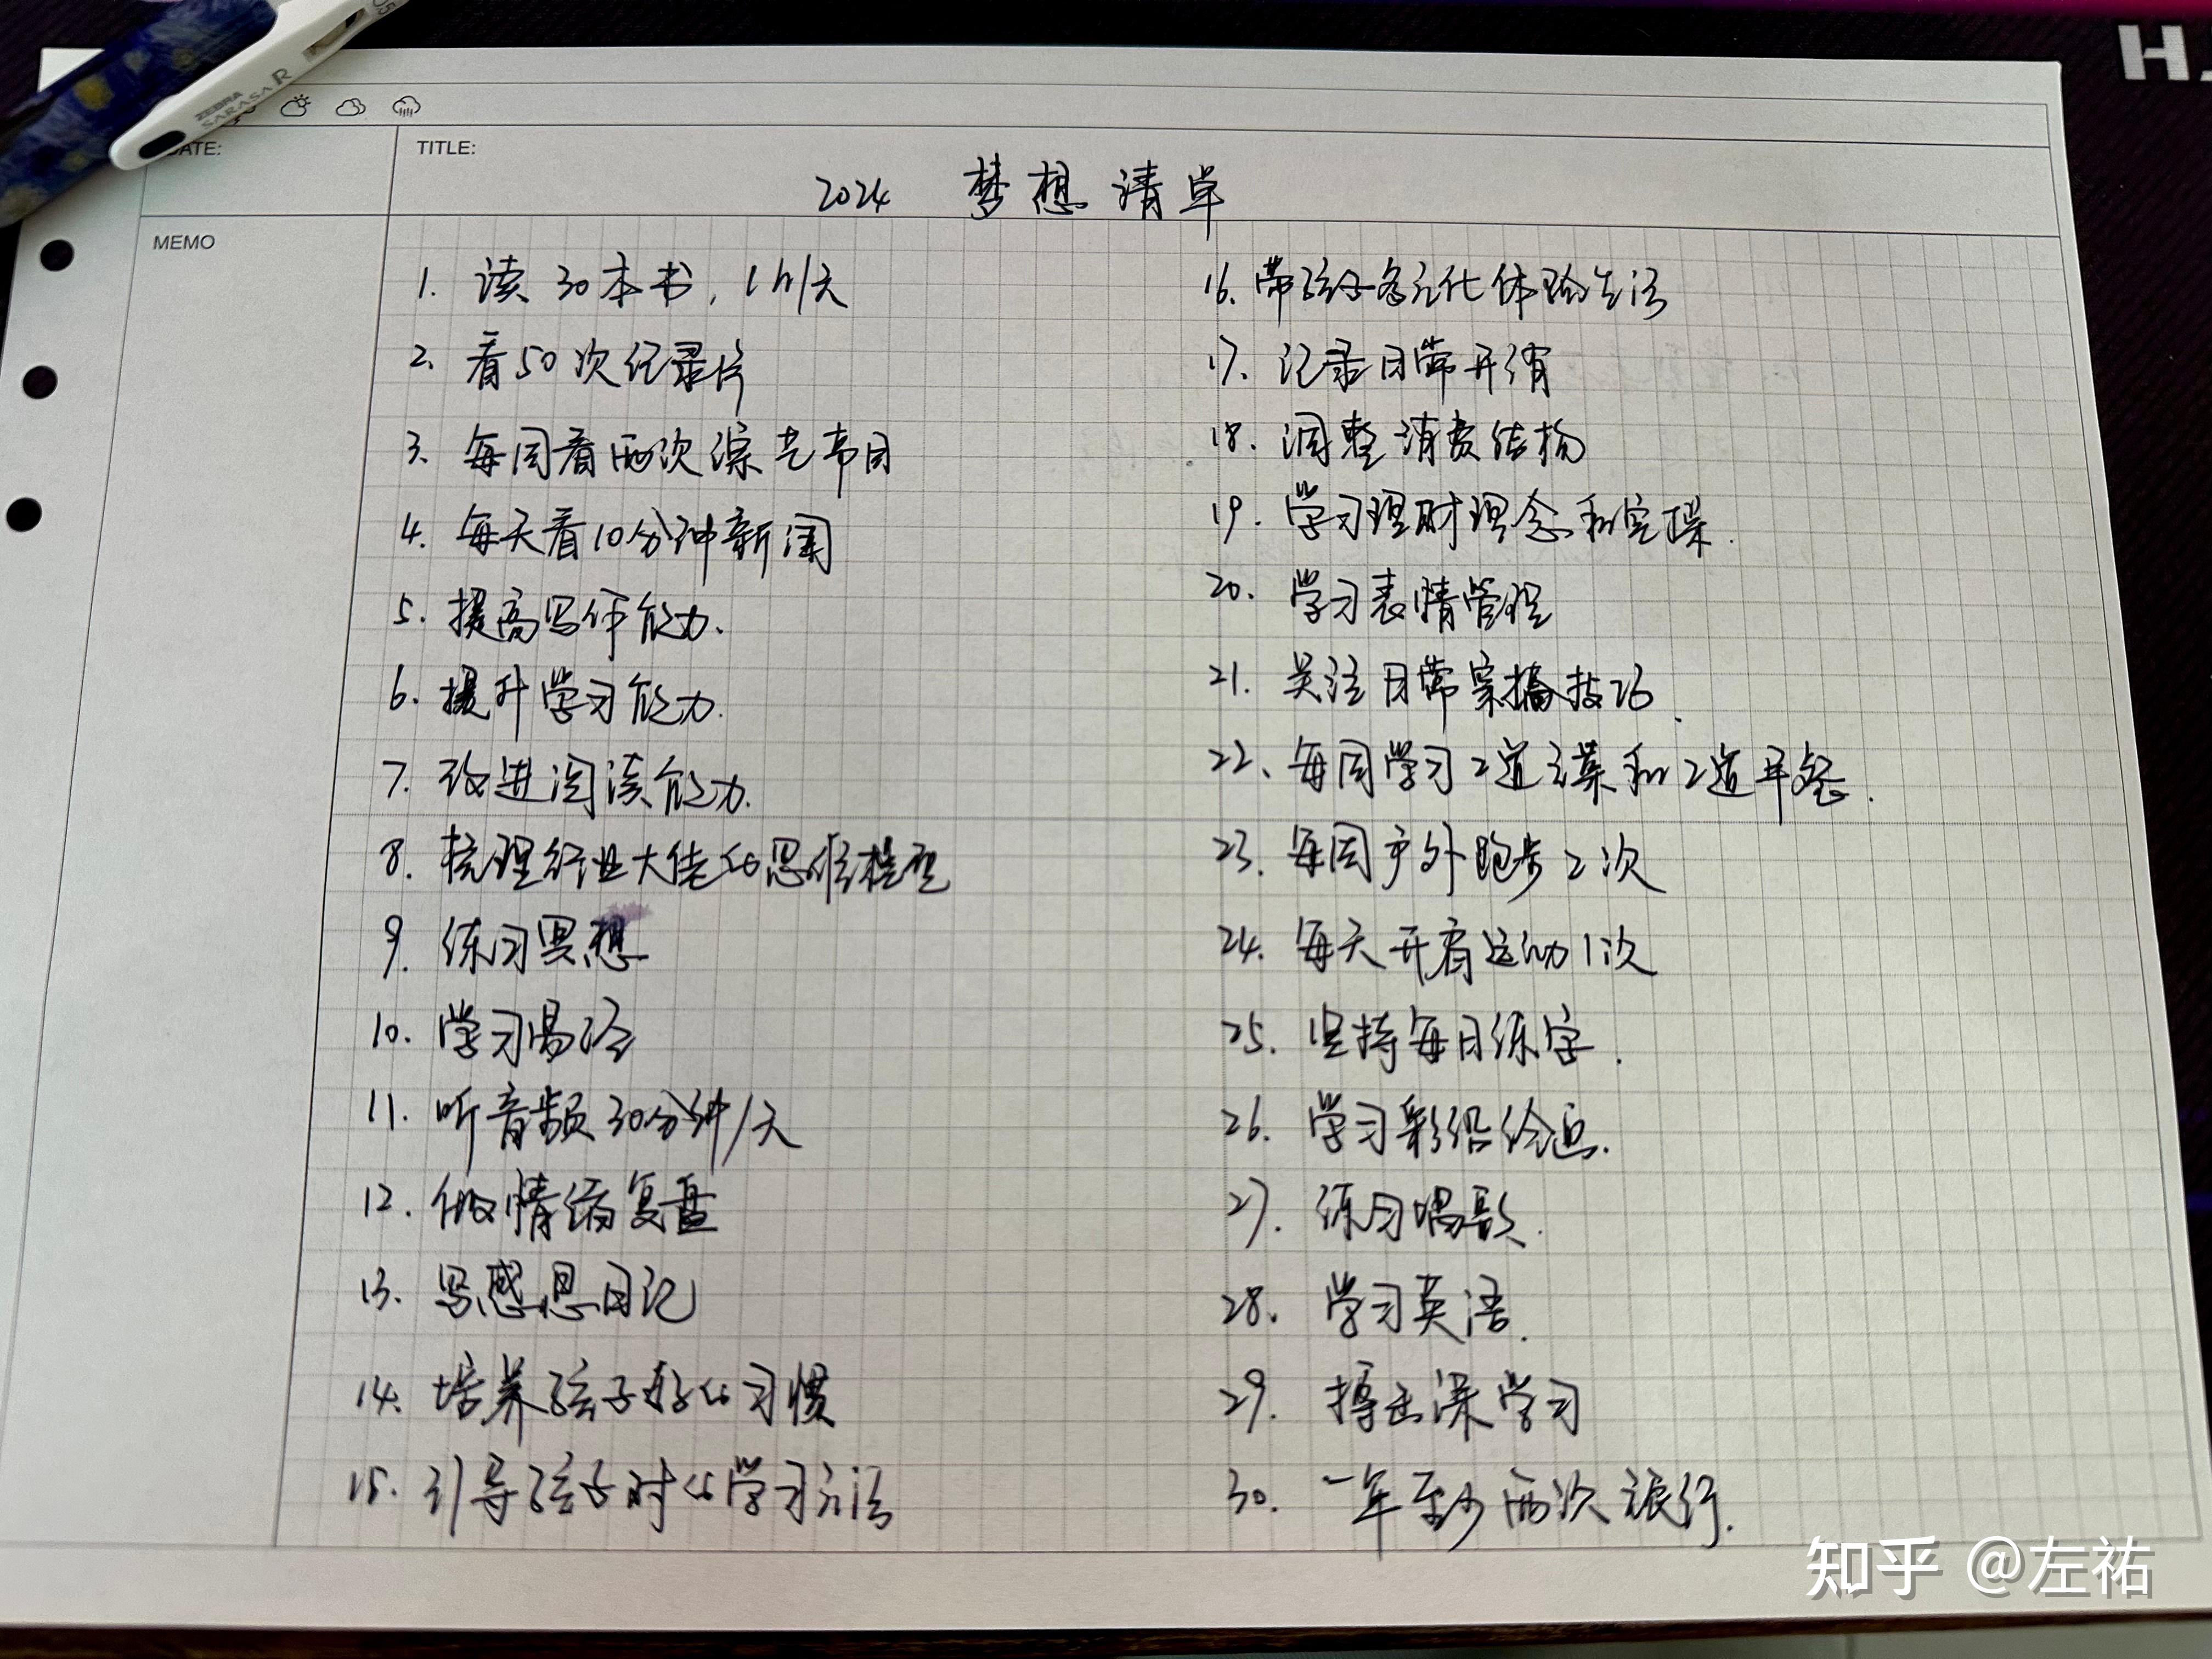 ZEBRA
SARASA R
DATE:
TITLE:
2024 梦想清单
MEMO
1. 读30本书, 1h/天
2. 看50次纪录片
3. 每周看两次综艺节目
4. 每天看10分钟新闻
5. 提高写作能力.
6. 提升学习能力.
7. 改进阅读能力.
8. 梳理行业大佬的思维模型
9. 练习冥想
10. 学习易经
11. 听音频30分钟/天
12. 做情绪复盘
13. 写感恩日记
14. 培养孩子好的习惯
15. 引导孩子对的学习方法
16. 带孩子多元化体验生活
17. 记录日常开销
18. 调整消费结构
19. 学习理财理念和实操.
20. 学习表情管理
21. 关注日常穿搭技巧.
22、每周学习2道菜和2道早餐.
23. 每周户外跑步2次
24. 每天开肩运动1次
25. 坚持每日练字.
26. 学习彩铅绘画.
27. 练习唱歌.
28. 学习英语.
29. 搏击深学习
30. 一年至少两次旅行.
知乎 @左祐